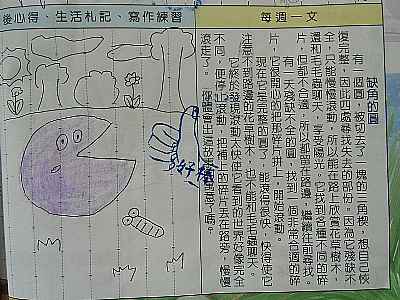 每週一文
後心得、生活札記、寫作練習
缺角的圓
有一個圓，被切去了一塊的三角楔，想自己恢
復完整，因此四處尋找失去的部份。因為它殘缺不
全，只能慢慢滾動，所以能在路上欣賞花草樹木，
還和毛毛蟲聊天，享受陽光。它找到各種不同的碎
片，但都不合適，所以都留在路邊，繼續往前尋找。
有一天殘缺不全的圓，找到一個非常合適的碎
片，它很開心的把那碎片拼上，開始滾動。
現在它是完整的圓了，能滾得很快，快得使它
注意不到路邊的花草樹木，也不能和毛毛蟲聊天。
它終於發現滾動太快使它看到的世界好像完全
不同，便停止滾動，把補上的碎片丟在路旁，慢慢
滾走了。你體會出這故事的意思了嗎？
好棒